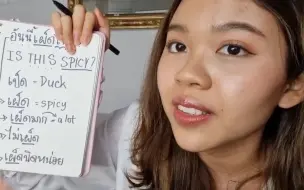 อันนี้เผ็ดไหม
IS THIS SPICY?
เป็ด - Duck
เผ็ด = spicy
เผ็ดมาก = a lot
ไม่เผ็ด
เผ็ดนิดหน่อย